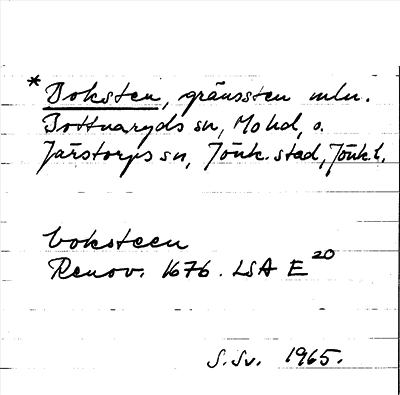 * Boksten, gränssten mln.
Bottnaryds sn, Mo hd, o.
Järstorps sn, Jönk. stad, Jönk. l.
boksteen
Renov. 1676. LSA E 20
S. Sv. 1965.